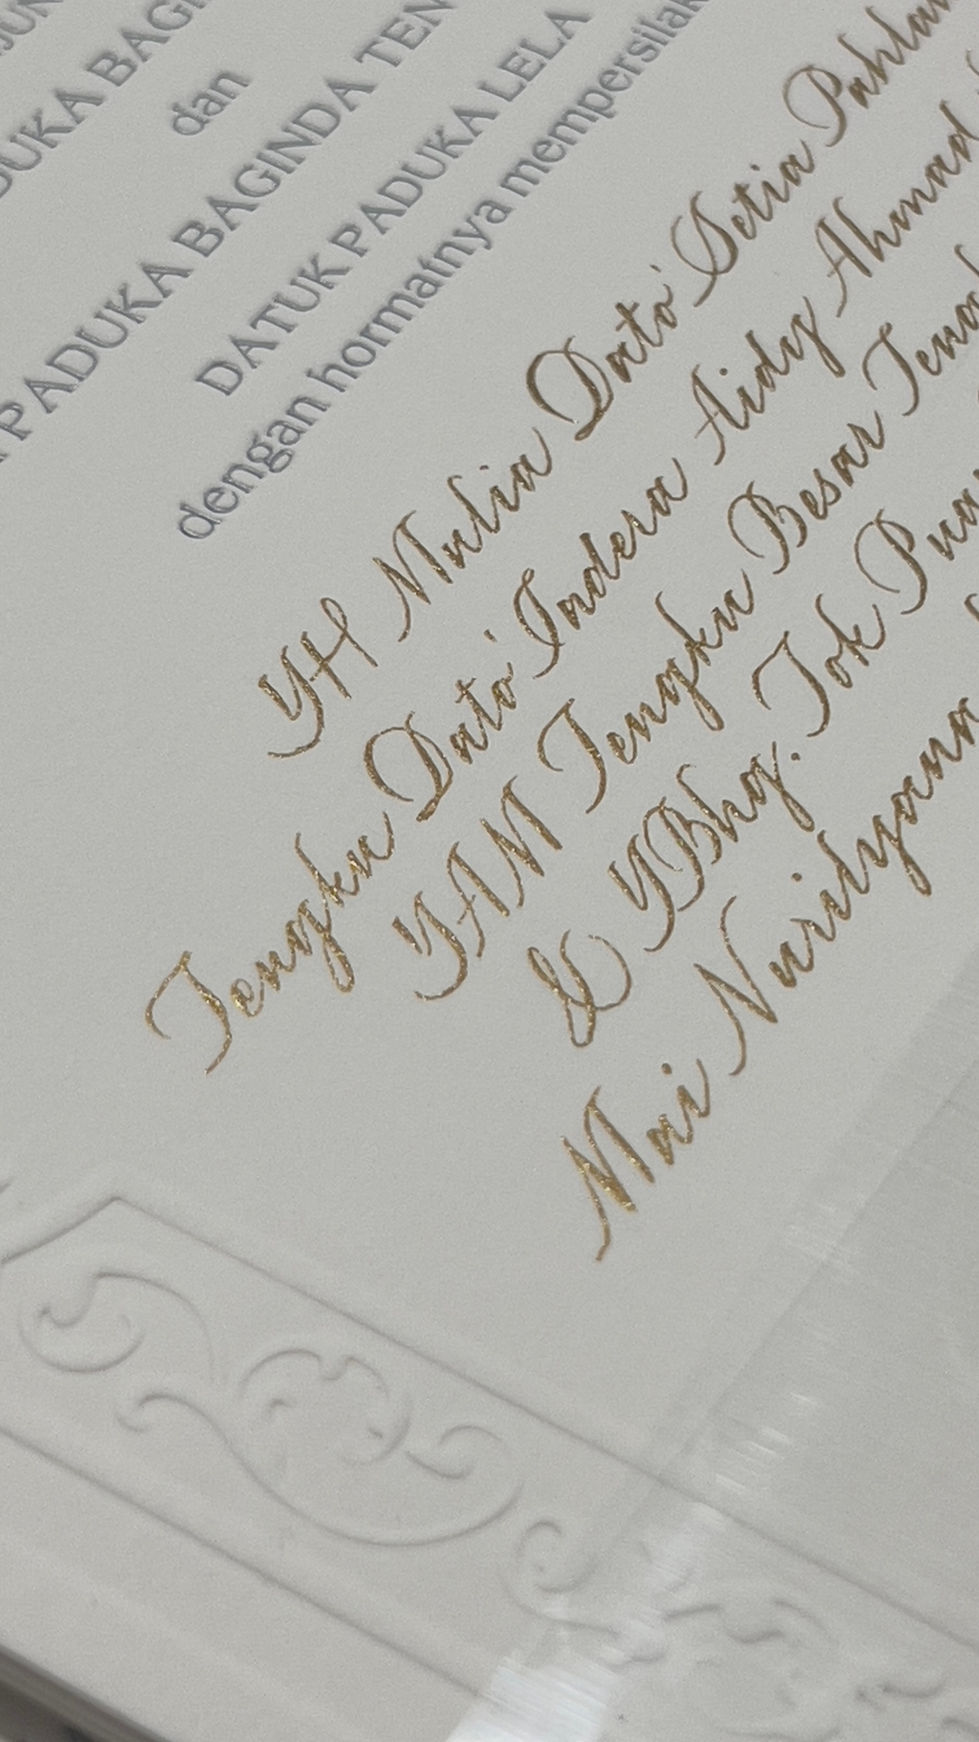 DUKA BAGI
dan
PADUKA BAGINDA TEN
DATUK PADUKA LELA
dengan hormatnya mempersila
YH Mulia Dato' Setia Pahla
Tengku Dato' Indera Aidy Ahmad
YAM Tengku Besar Teng
& YBhg. Tok Pua
Mai Nurilyana